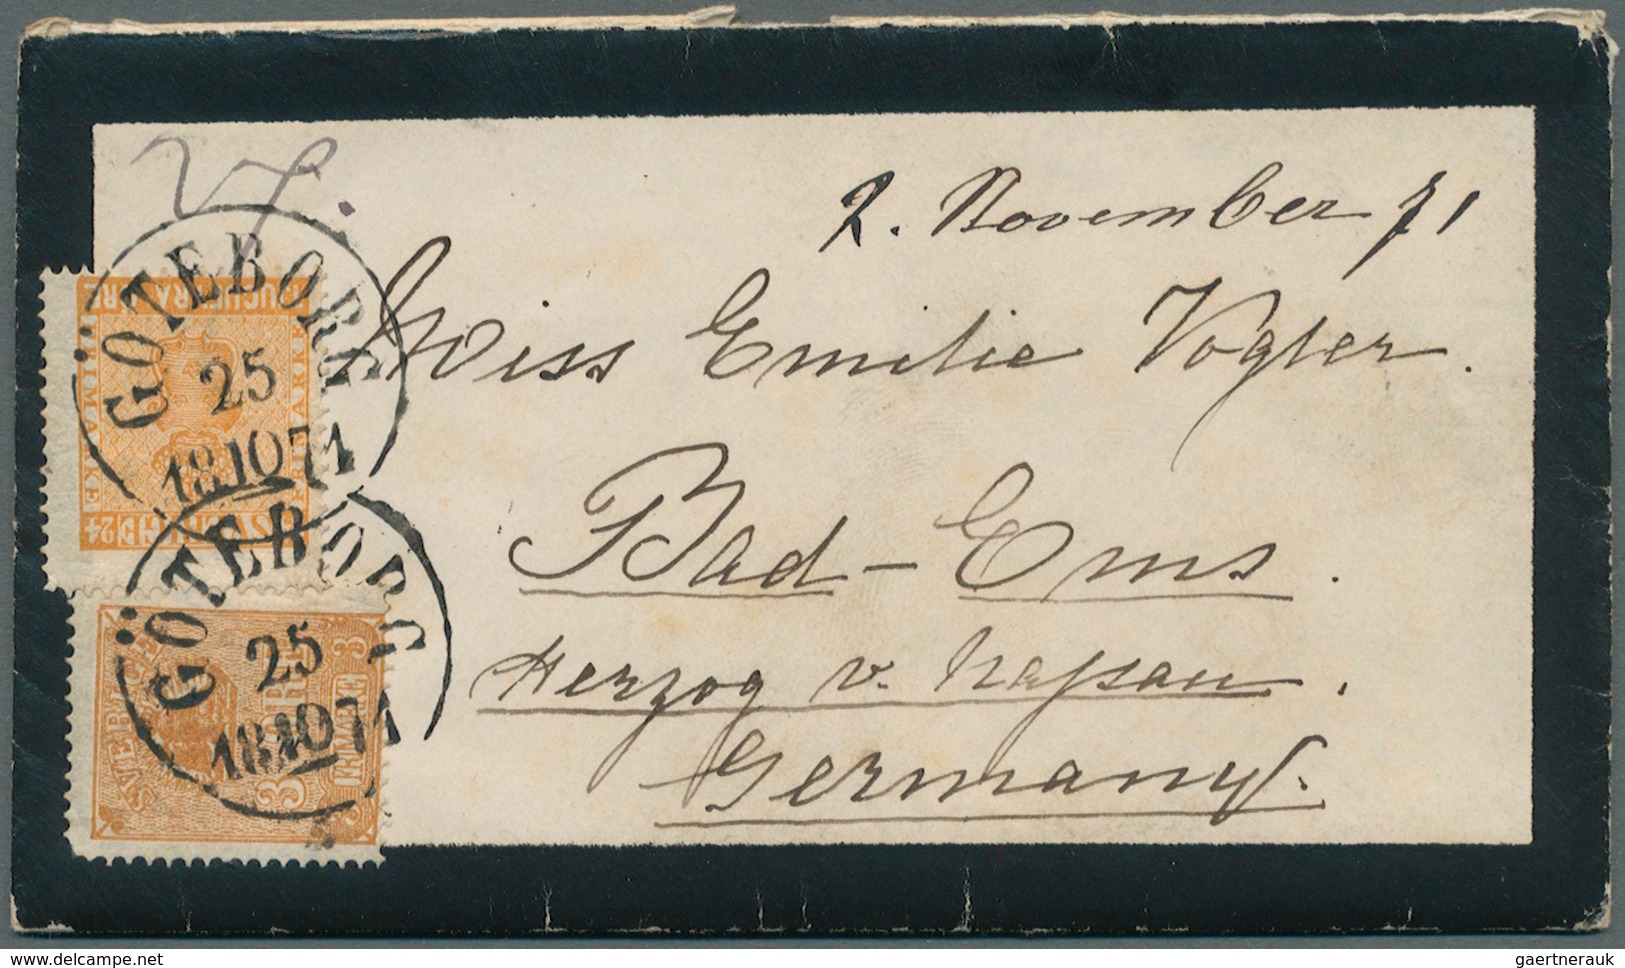 2. November 71
Miss Emilie Vogler.
Bad-Ems.
Herzog v. Nassau.
Germany.
GÖTEBORG
25
18 10 71
TJUGUFYRA ÖRE
FRIMÄRKE
FRIMÄRKE
24 SVERIGE
GÖTEBORG
25
18 10 71
SVERIGE
3 ÖRE 3
FRIMÄRKE
delcampe.net
gaertnerauk